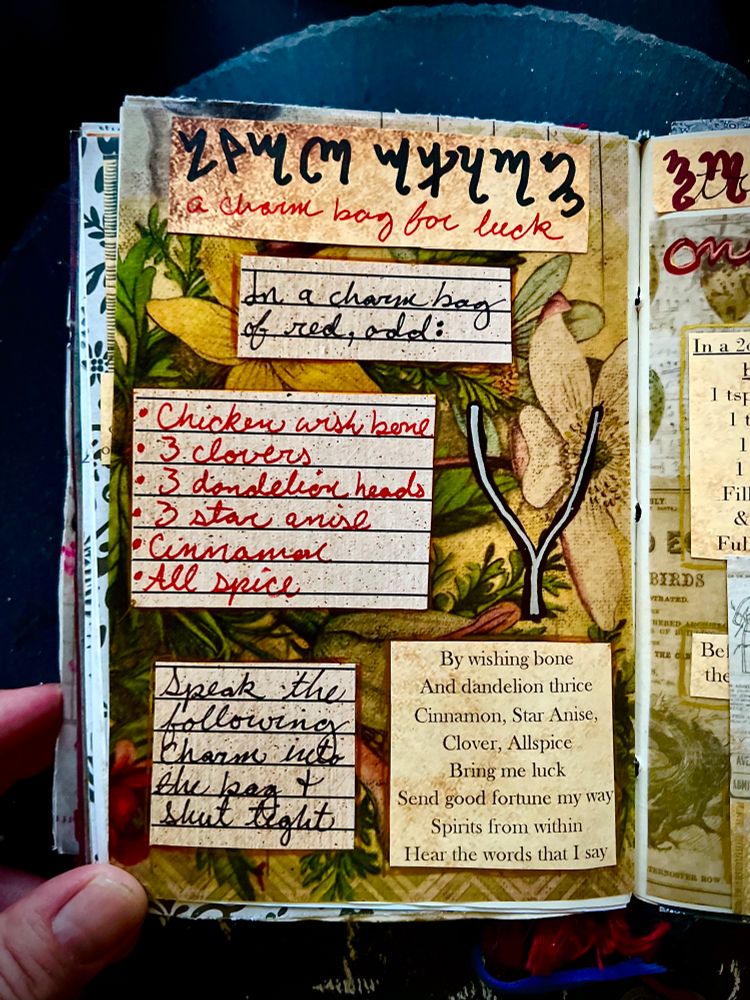 a charm bag for luck
In a charm bag
of red, add:
• Chicken wish bone
• 3 clovers
• 3 dandelion heads
• 3 star anise
• Cinnamon
• All spice
Speak the
following
charm into
the bag &
shut tight
By wishing bone
And dandelion thrice
Cinnamon, Star Anise,
Clover, Allspice
Bring me luck
Send good fortune my way
Spirits from within
Hear the words that I say
In a
1 tsp
1 t
1
1
Fill
&
Full
BIRDS
the